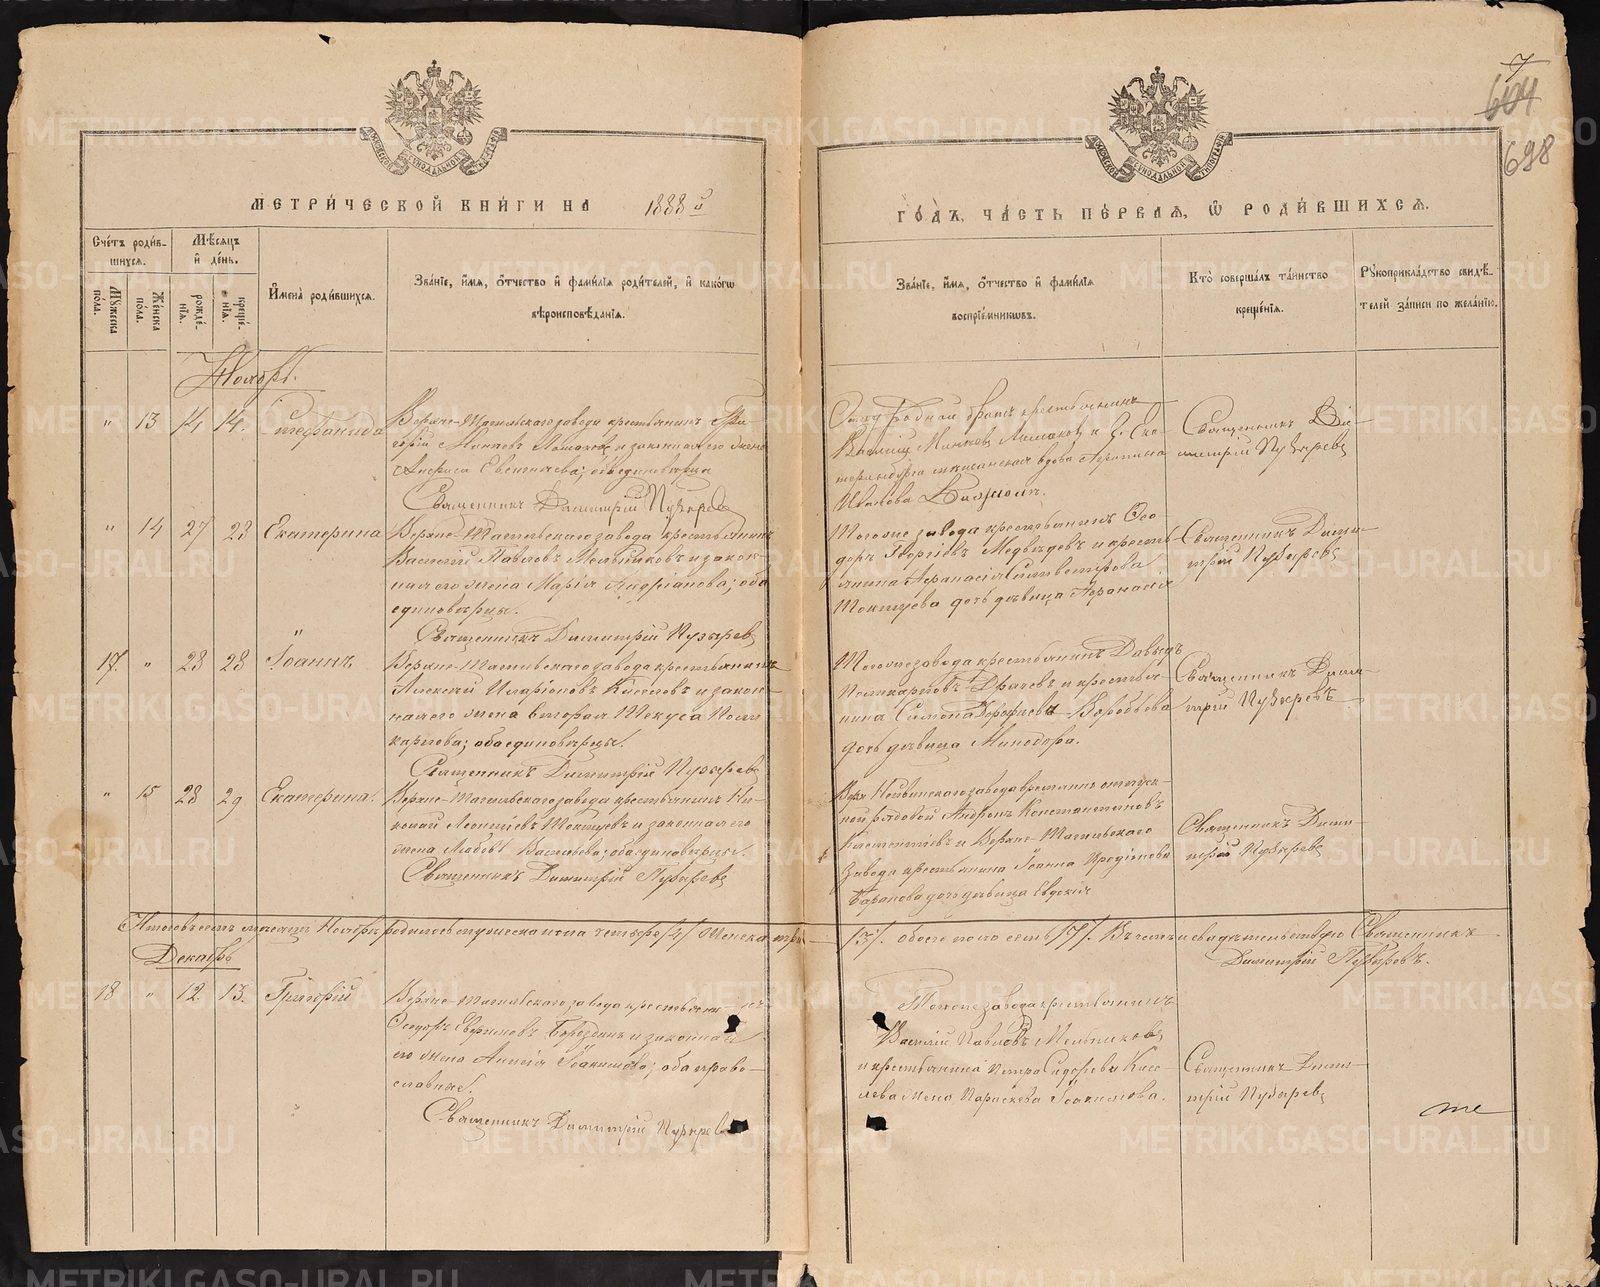 METRIKI.GASO-URAL.RU
7
604
698
МЕТРИ́ЧЕСКОЙ КНИ́ГИ НА 1888й
ГО́ДЪ, ЧА́СТЬ ПЕ́РВАѦ, Ѡ РОДИ́ВШИХСѦ.
Сче́тъ роди́вшихсѧ.
Мꙋ́жеска по́ла.
Же́нска по́ла.
Мѣ́сѧцъ и҆ де́нь.
рожде́нїѧ.
креще́нїѧ.
И҆мена̀ роди́вшихсѧ.
Зва́нїе, и҆́мѧ, ѻ҆́тчество и҆ фами́лїѧ роди́телей, и҆ како́гѡ вѣроисповѣ́данїѧ.
Зва́нїе, и҆́мѧ, ѻ҆́тчество и҆ фами́лїѧ воспрїе́мникѡвъ.
Кто̀ соверша́лъ та́инство креще́нїѧ.
Рꙋкоприкла́дство свидѣ́телей за́писи по жела́нїю.
Ноябрь.
" 13 14 14. Стефанида
Верхне-Тагильскаго завода крестьянинъ Гри-
горій Минаевъ и законная его жена
Евгеньева; оба единоверцы
Священникъ Димитрій Пузыревъ
родной братъ крестьянинъ
Василій Минаевъ и г. Ека-
теринбурга мещанская вдова Агрипина
Иванова
Священникъ Ди-
митрій Пузыревъ
" 14 27 28 Екатерина
Верхне-Тагильскаго завода крестьянинъ
Василій Павловъ Мельниковъ и закон-
ная его жена Марія Андріанова; оба
единоверцы.
Священникъ Димитрій Пузыревъ
Тогоже завода крестьянинъ Ѳео-
доръ Георгіевъ Медведевъ и кресть-
янина Афанасія Сильвестрова
Токтуева дочь девица Афанасія
Священникъ Дими-
трій Пузыревъ
17. " 28 28 Іоаннъ
Верхне-Тагильскаго завода крестьянинъ
Алексей Иларіоновъ Киселевъ и закон-
ная его жена вторая Текуса Поли
карпова; оба единоверцы.
Священникъ Димитрій Пузыревъ
Тогоже завода крестьянинъ Давыдъ
Поликарповъ Драчевъ и крестья-
нина Симона Дорофеева Воробьева
дочь девица Минодора.
Священникъ Дими-
трій Пузыревъ
" 15 28 29 Екатерина.
Верхне-Тагильскаго завода крестьянинъ Ни-
колай Леонтьевъ Токтуевъ и законная его
жена Любовь Васильева; оба единоверцы.
Священникъ Димитрій Пузыревъ
Верх Нейвинскаго завода временно отпуск-
ной рядовой Андрей Константиновъ
и Верхне-Тагильскаго
завода крестьянина Іоанна Иродіонова
Баранова дочь девица Евдокія
Священникъ Дими-
трій Пузыревъ
Итого въ семъ месяце Ноябре родилось мужеска пола четыре /4/ женска три /3/. обоего пола семь /7/. Въ чемъ и свидетельствую Священникъ
Димитрій Пузыревъ.
Декабрь
18 " 12 13. Григорій
Верхне-Тагильскаго завода крестьянинъ
Ѳеодоръ Евфимовъ Бороздинъ и законная
его жена Анисія Іоакимова; оба право-
славные.
Священникъ Димитрій Пузыревъ
Тогоже завода крестьянинъ
Василій Павловъ Мельниковъ
и крестьянина Петра Сидорова Кисе-
лева жена Параскева Іоакимова.
Священникъ Дими-
трій Пузыревъ